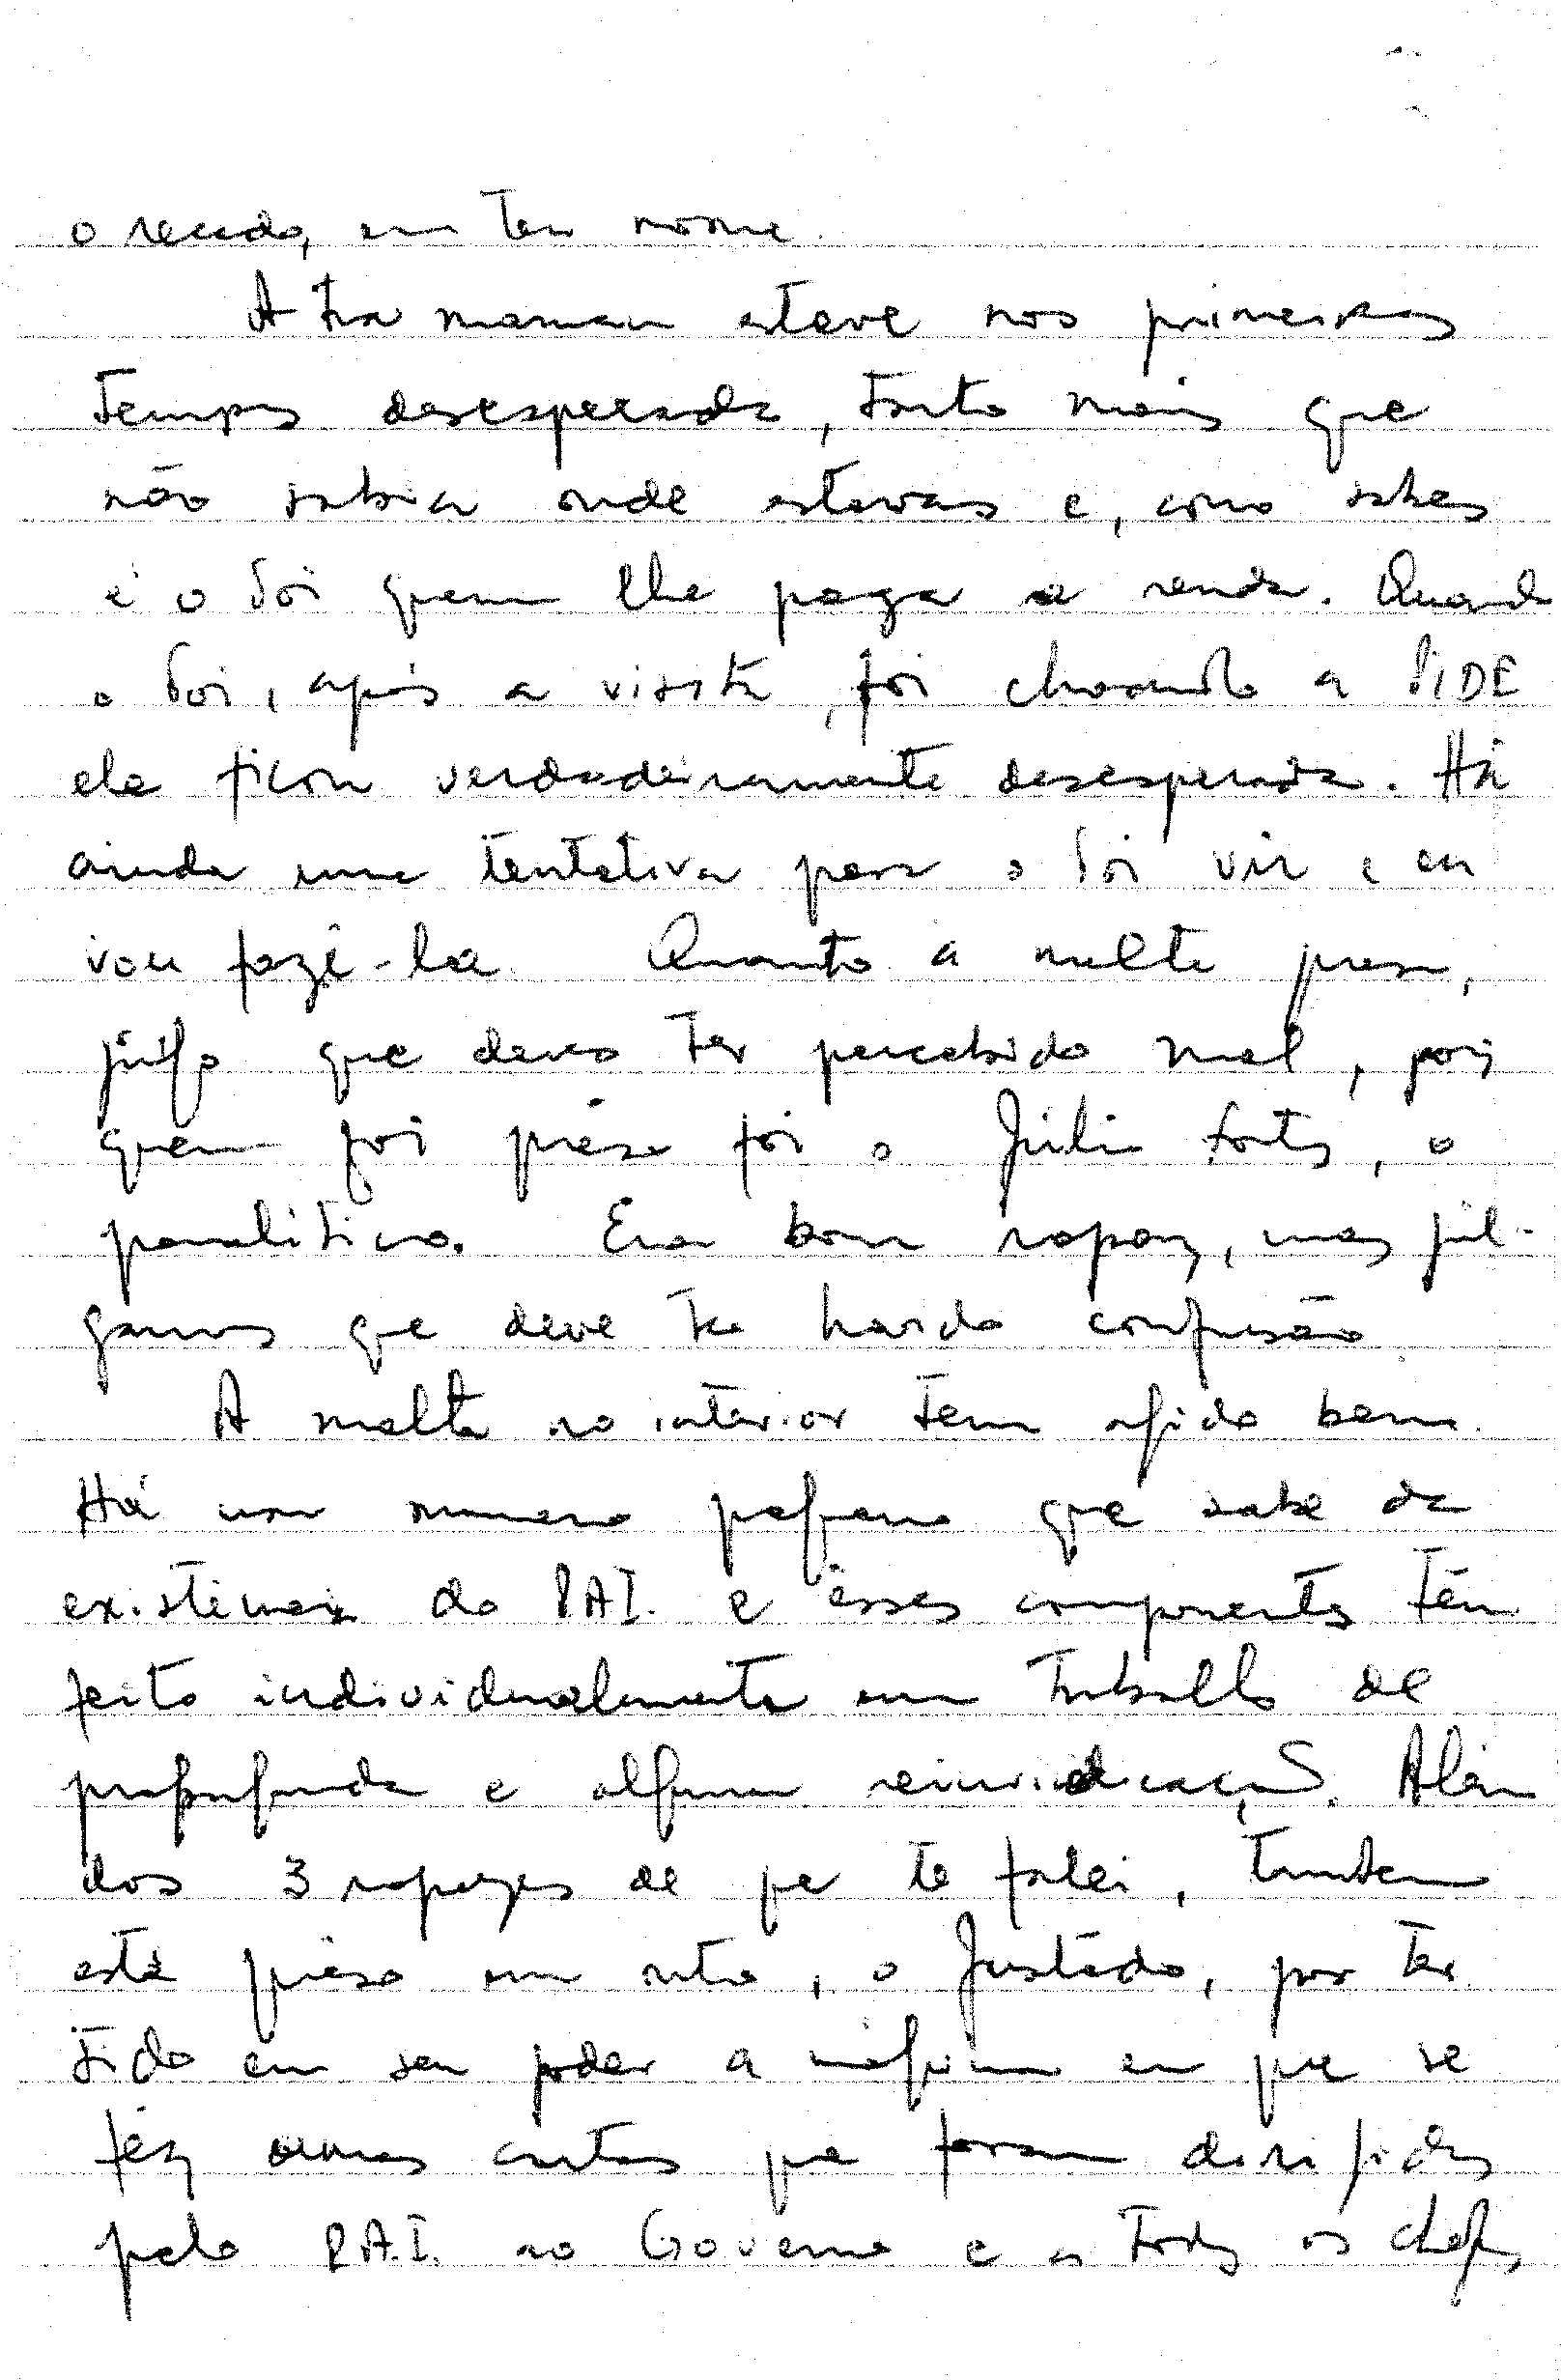 o recado, em teu nome.
A tua maman esteve nos primeiros
tempos desesperada, tanto mais que
não sabia onde estavas e, como sabes
é o Toi quem lhe paga a renda. Quando
o Toi, após a visita, foi chamado a PIDE
ela ficou verdadeiramente desesperada. Há
ainda uma tentativa para o Toi vir e eu
vou fazê-la. Quanto a malta presa,
julgo que deves ter percebido mal, pois
quem foi prêso foi o Júlio Fortes, o
paralitico. Era bom rapaz, mas jul-
gamos que deve ter havido confusão.
A malta no interior tem agido bem.
Há um numero pequeno que sabe da
existência do PAI. e êsses componentes têm
feito individualmente um trabalho de
propaganda e alguma reinvidicação. Além
dos 3 rapazes de que te falei, tambem
está prêso um outro, o Justado, por ter
tido em seu poder a máquina em que se
fêz umas cartas que foram dirigidas
pelo P.A.I. ao Governo e a todos os chefes